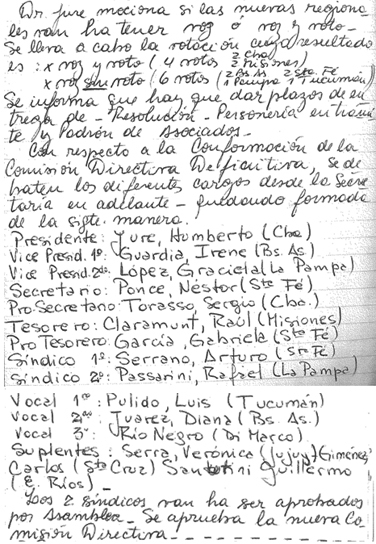 Dr. Jure mociona si las nuevas regiona
les van ha tener voz ó voz y voto-
Se lleva a cabo la votación cuyo resultado
es: x voz y voto (4 votos 2 Cba 2 Misiones)
x voz sin voto (6 votos (2 Bs As 2 Sta. Fe 1 Pampa 1 Tucumán)
Se informa que hay que dar plazos de en
trega de - Resolución - Personería en trámi
te y Padrón de Asociados-
Con respecto a la Conformación de la
Comisión Directiva Definitiva, se de
baten los diferentes cargos desde la Secre
taría en adelante - quedando formada
de la sigte. manera.
Presidente: Jure, Humberto (Cba)
Vice Presid. 1º: Guardia, Irene (Bs. As)
Vice Presid. 2do: López, Graciela (La Pampa)
Secretario: Ponce, Néstor (Sta Fé)
Pro.Secretario: Torasso, Sergio (Cba.)
Tesorero: Claramunt, Raúl (Misiones)
Pro Tesorero: García, Gabriela (Sta Fé)
Síndico 1º: Serrano, Arturo (Sta Fé)
Síndico 2º: Passarini, Rafael (La Pampa)
Vocal 1º: Pulido, Luis (Tucumán)
Vocal 2do: Juarez, Diana (Bs. As.)
Vocal 3º: Río Negro (Di Marco)
Suplentes: Serra, Verónica (Jujuy) Giménez,
Carlos (Sta Cruz) Santini Guillermo
(E. Ríos)-
Los 2 síndicos van ha ser aprobados
por Asamblea- Se aprueba la nueva Co
misión Directiva - - - - - - - - - -